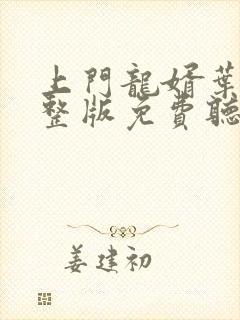 上門龍婿葉
整版免費聽
姜建初